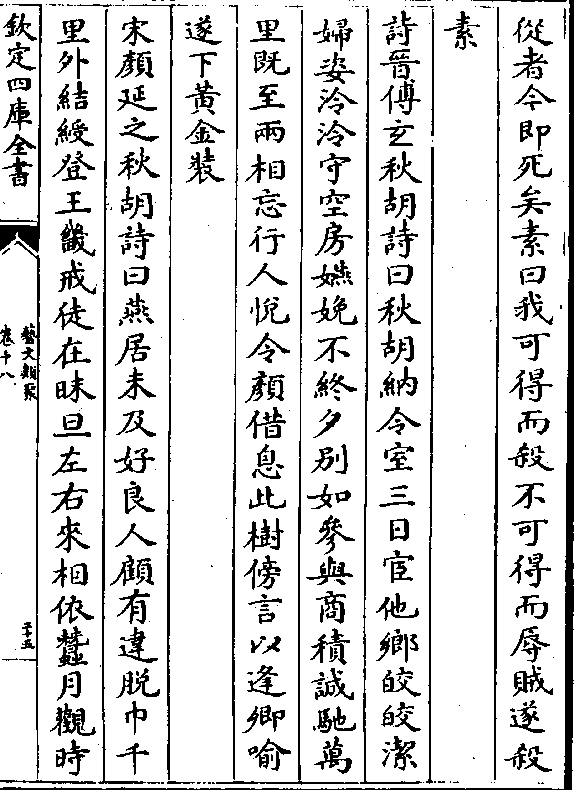 從者今即死矣素曰我可得而殺不可得而辱賊遂殺
素
詩晉傅玄秋胡詩曰秋胡納令室三日宦他鄉皎皎潔
婦姿泠泠守空房嬿婉不終夕别如參與商積誠馳萬
里既至兩相忘行人悅令顔借息此樹傍言以逢卿喻
遂下黄金裝
宋顔延之秋胡詩曰燕居未及好良人顧有違脱巾千
里外結綬登王畿戒徒在昧旦左右來相依蠶月觀時
欽定四庫全書
藝文類聚
卷十八
二十五